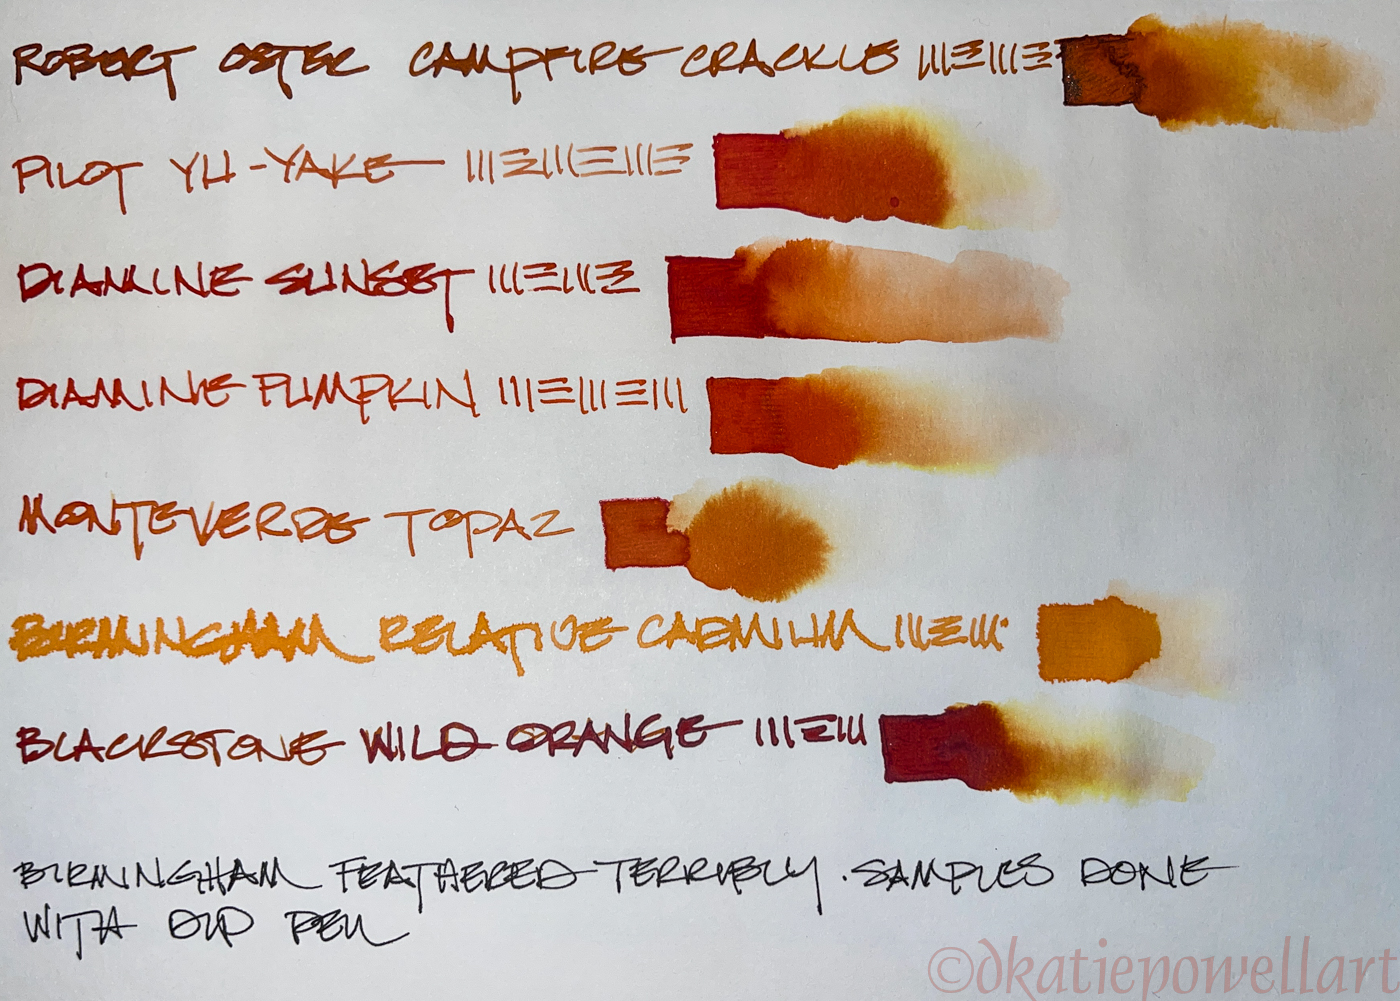 ROBERT OSTER CAMPFIRE CRACKLE
PILOT YU-YAKE
DIAMINE SUNSET
DIAMINE PUMPKIN
MONTEVERDE TOPAZ
BIRMINGHAM RELATIVE CADMIUM
BLACKSTONE WILD ORANGE
BIRMINGHAM FEATHERED TERRIBLY. SAMPLES DONE
WITH DIP PEN
©dkatiepowellart